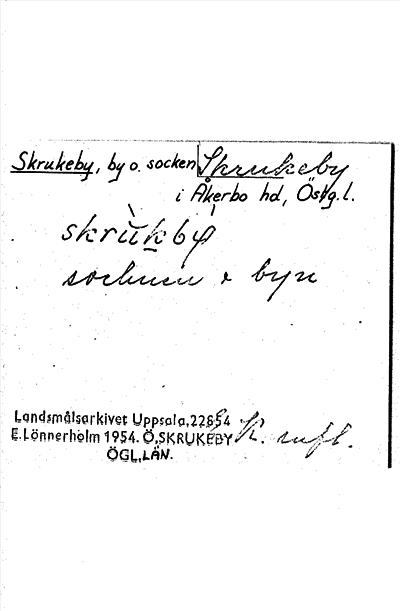 Skrukeby, by o. socken Skrukeby
i Åkerbo hd, Östg.l.
skrùkbý
socknen o byn
Landsmålsarkivet Uppsala, 22854
E. Lönnerholm 1954. Ö. SKRUKEBY K.
ÖGL. LÄN.